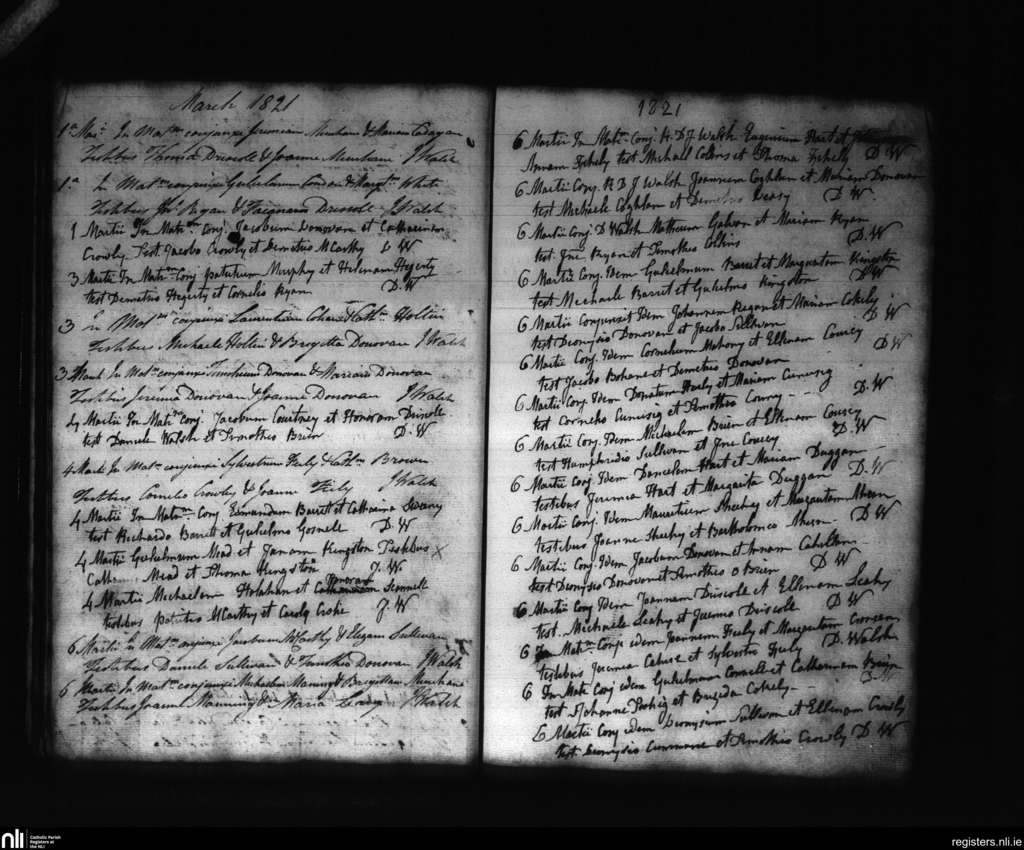 March 1821
1a Mar: In Matm conjunxi Jeremiam Minehane & Mariam Cadagan
Testibus Thoma Driscoll & Joanna Minehane J Walsh
1a In Matm conjunxi Gulielmum Condon & Margt White
Testibus Jno Ryan & Driscoll J Walsh
1 Martii In Matm Conj. Jacobum Donovan et Catharinam
Crowly Test Jacobo Crowly et Demetrio McCarthy D W
3 Martii In Matm Conj Patritium Murphy et Helenam Hegerty
test Demetrio Hegerty et Cornelio Ryan D. W
3 In Matm conjunxi Laurentium & Cathn Holten
Testibus Michaele Holten & Brigitta Donovan J Walsh
3 March In Matm conjunxi Timotheum Donovan & Mariam Donovan
Testibus Jeremia Donovan & Joanne Donovan J Walsh
4 Martii In Matm Conj. Jacobum Courtney et Honoram Driscole
test Daniele Walsh et Timotheo Brien D. W
4 March In Matm conjunxi Sylvestrum Feily & Cathn Brown
Testibus Cornelio Crowley & Joanne Feily J Walsh
4 Martii In Matm Conj Edmundum Barret et Catherina Sweny
test Richardo Barrett et Gulielmo Gosnell D. W
4 Martii Gulielmum Mead et Janam Kingston Testibus X
Cath: Mead et Thoma Kingston J. W
4 Martii Michaelem Holohan et Honoram Sennell
testibus Patritio McCarthy et Caroly J. W
6 Martii In Matm conjunxi Jacobum McCarthy & Elizam Sullivan
Testibus Daniele Sullivan & Timotheo Donovan J Walsh
6 Martii In Matm conjunxi Michaelem Manning & Brigittam Minehane
Testibus Joanne Manning & Maria Leary J Walsh
1821
6 Martii In Matm Conj. R. D. J Walsh Eugenium Hart et
Annam Fehely test Michaell Collins et Thoma Fehelly D W
6 Martii Conj. R D J Walsh Joannem Coghlan et Mariam Donovan
test Michaele Coghlan et Demetrio Leary D W.
6 Martii Conj D Walsh Matheum Galvan et Mariam Ryan
test. Jne Ryan et Timotheo Collins D. W
6 Martii Conj. Idem Gulielmum Barret et Margaritam Kingston
test Michaele Barret et Gulielmo Kingston D W
6 Martii Conjunxit Idem Johannem Regan et Mariam Cokely
test Dionysio Donovan et Jacobo Sullivan D W
6 Martii Conj. Idem Cornelium Mahony et Ellenam Coucy
test Jacobo Bohane et Demetrio Donovan D W
6 Martii Conj Idem Donatum Hurly et Mariam
test Cornelio et Timotheo D. W
6 Martii Conj. Idem Michaelem Brien et Ellenam Coucey
test Humphridio Sullivan et Jne Coucey D. W
6 Martii Conj. Idem Danielem Hart et Mariam Duggan
testibus Jeremia Hart et Margarita Duggan D. W
6 Martii Conj. Idem Mauritium Sheehey et Margaritam Ahern
testibus Joanne Sheehy et Bartholomeo Ahern D W
6 Martii Conj. Idem Jacobum Donovan et Annam Cahallan
test Dionysio Donovan et Timotheo O Brien D W
6 Martii Conj Idem Joannam Driscole et Ellenam Leahy
test. Michaele Leahy et Jeremio Driscole D W
6 In Matm Conj: idem Joannem Feily et Margaritam
testibus Jeremia et Sylvestro Feily D. Walsh
6 In Matm Conj idem Gulielmum Connell et Catherinam Regan
test Johanne et Brigida Cokely D. W
6 Martii Conj idem Dionysium Sullivan et Ellenam Crowly
test. Dionysio et Timotheo Crowly D W
nli
Catholic Parish
Registers at
the NLI
registers.nli.ie